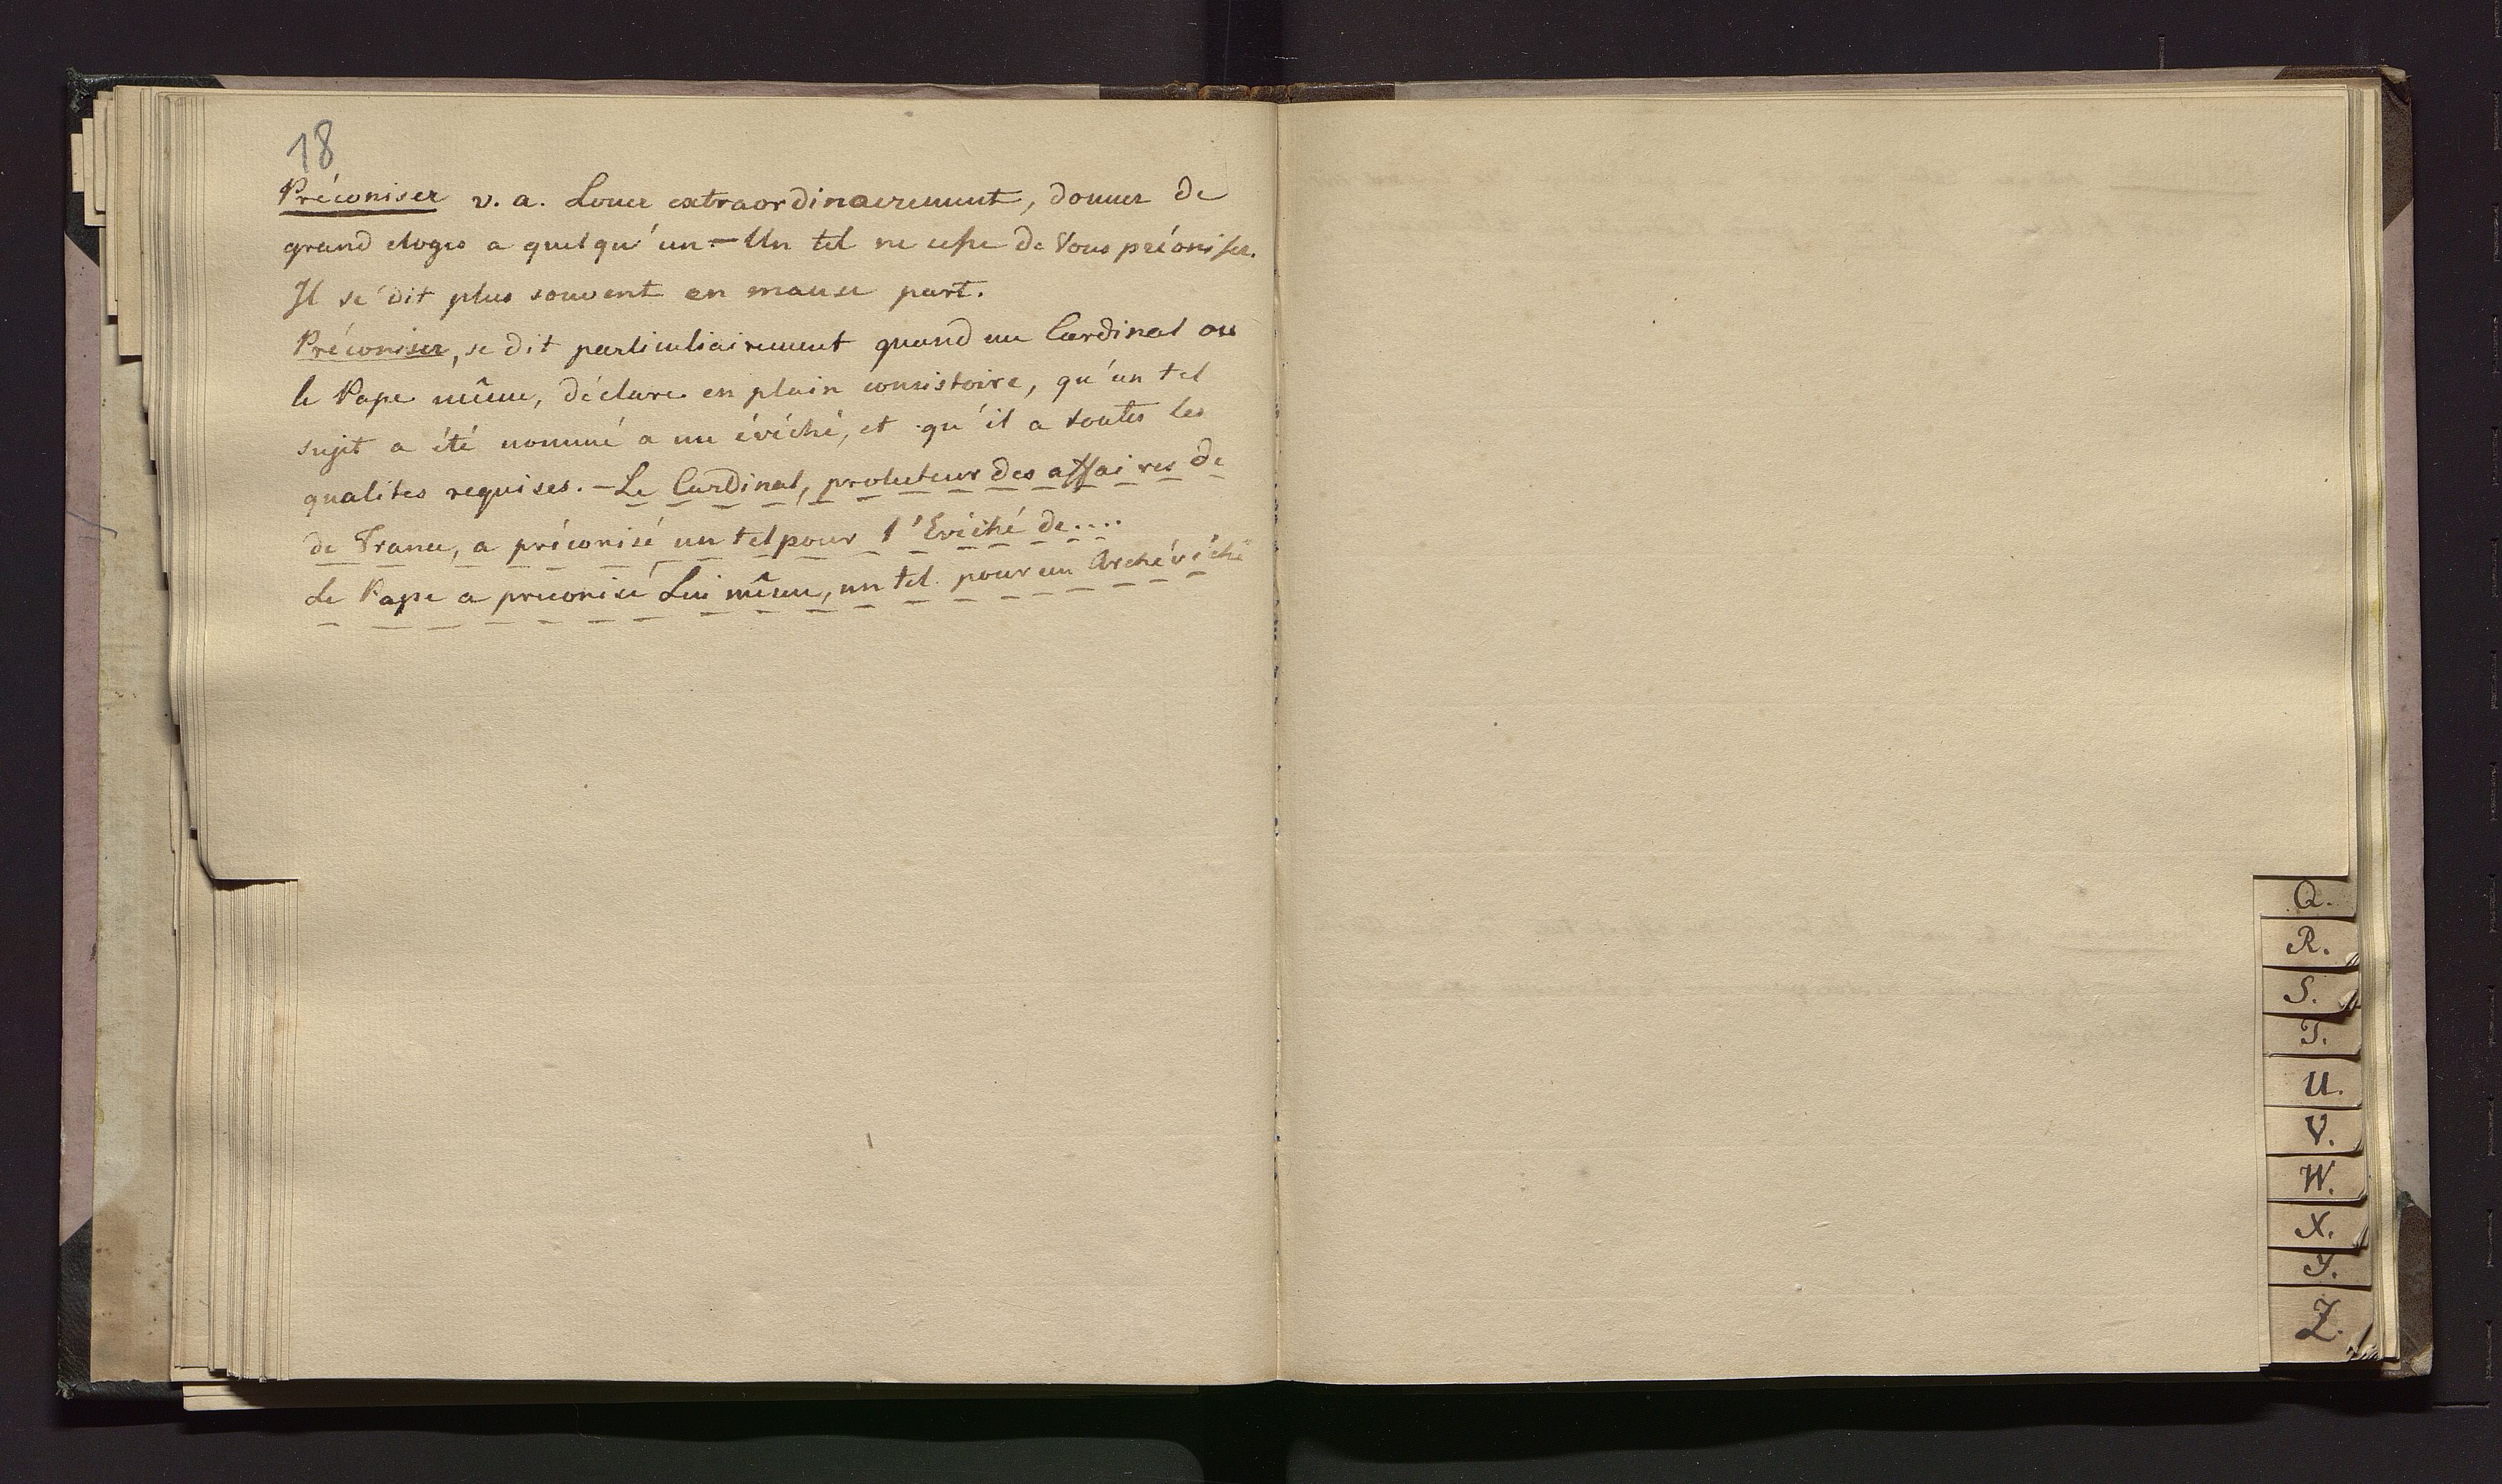 18
Préconiser v. a. Louer extraordinairement, donner de
grand eloges a quelqu'un. — Un tel ne cesse de Vous préoniser.
Il se dit plus souvent en mause part.
Préconiser, se dit particuliairement quand un Cardinal ou
le Pape même, déclare en plain consistoire, qu'un tel
sujet a été nommé a un évêché, et qu'il a toutes les
qualites requises. — Le Cardinal, protecteur des affaires de
de France, a préconisé un tel pour l'Evêché de....
Le Pape a preconisé Lui même, un tel pour un Archévêché
Q.
R.
S.
T.
U.
V.
W.
X.
Y.
Z.